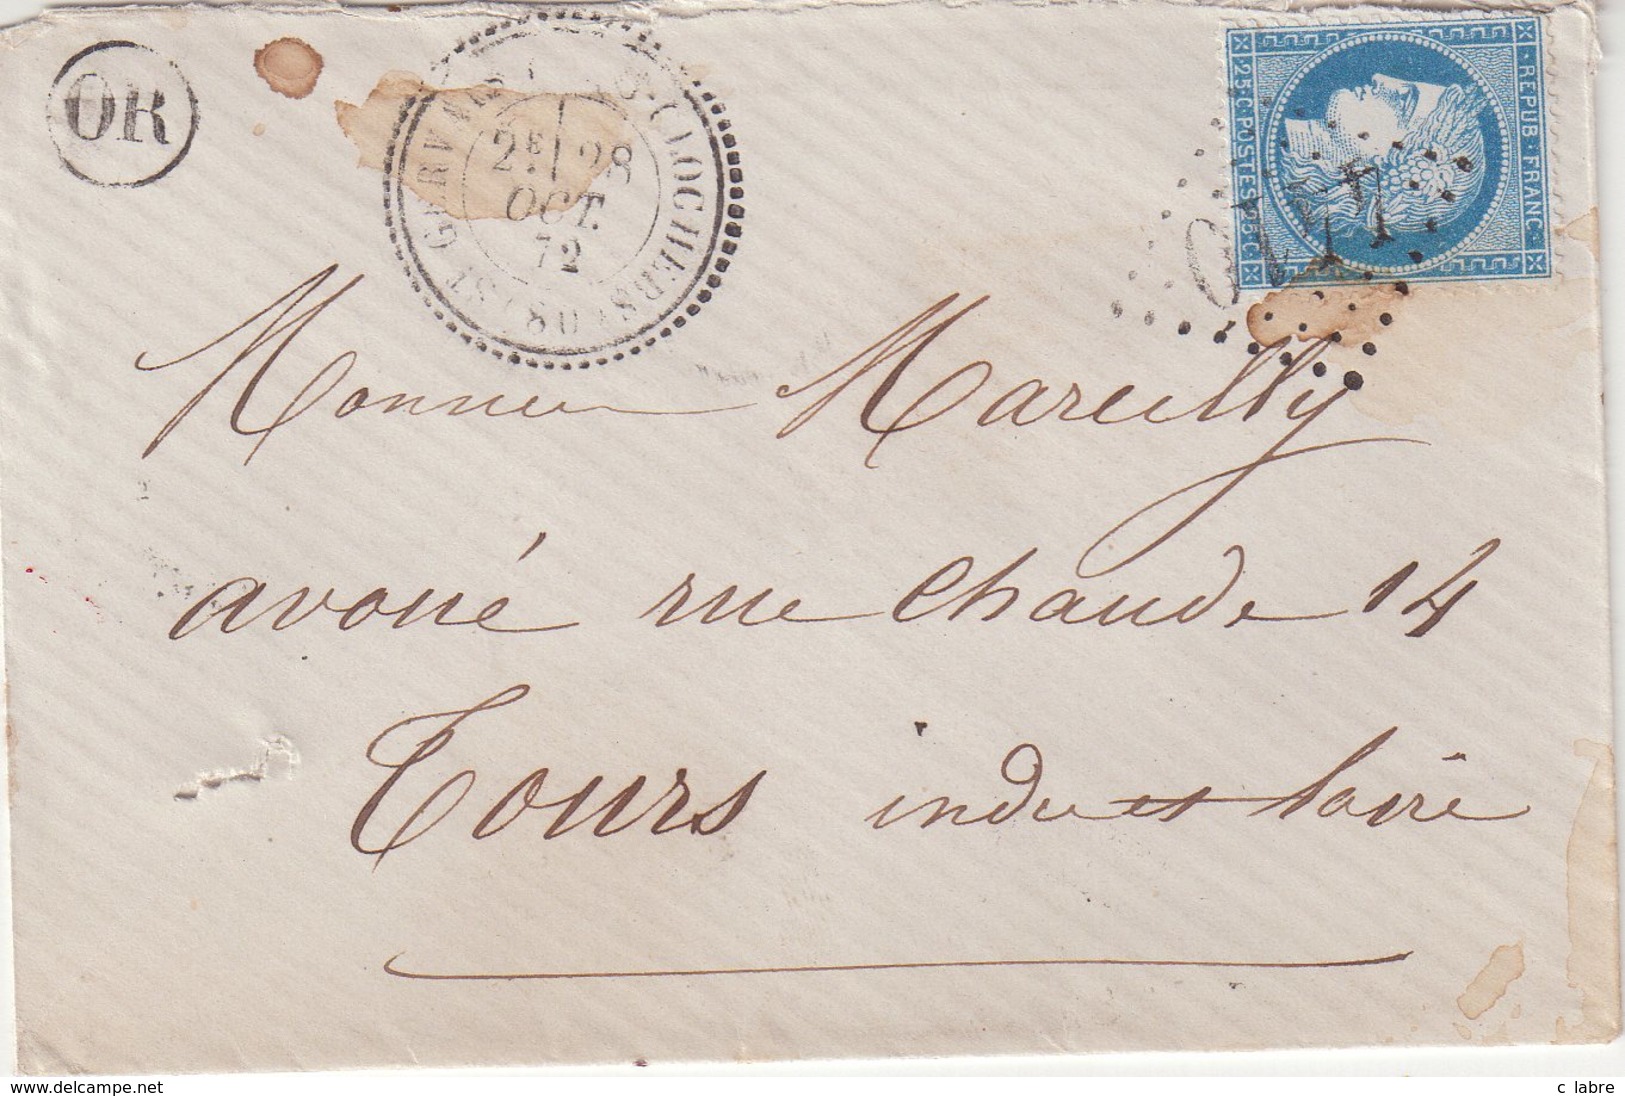 OR
ST GERVAIS LES 3 CLOCHERS (80)
2E 28
OCT.
72
REPUB · FRANC ·
· 25 · C · POSTES · 25 · C ·
Monsieur Mareilly
avoué rue Chaude 14
Tours indre et loire
www.delcampe.net
c labre